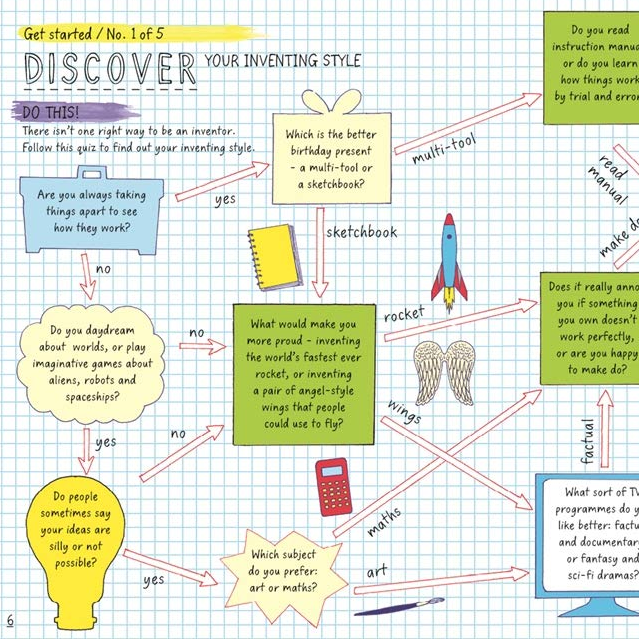 Get started / No. 1 of 5
DISCOVER YOUR INVENTING STYLE
DO THIS!
There isn't one right way to be an inventor.
Follow this quiz to find out your inventing style.
Are you always taking
things apart to see
how they work?
yes
no
Which is the better
birthday present
- a multi-tool or
a sketchbook?
multi-tool
sketchbook
Do you read
instruction
or do you learn
how things work
by trial and error
read
manual
make do
Do you daydream
about worlds, or play
imaginative games about
aliens, robots and
spaceships?
no
yes
What would make you
more proud - inventing
the world's fastest ever
rocket, or inventing
a pair of angel-style
wings that people
could use to fly?
rocket
wings
Does it really
you if something
you own doesn't
work perfectly,
or are you happy
to make do?
Do people
sometimes say
your ideas are
silly or not
possible?
no
yes
Which subject
do you prefer:
art or maths?
maths
art
factual
What sort of TV
programmes do
like better:
and
or fantasy and
sci-fi dramas?
6